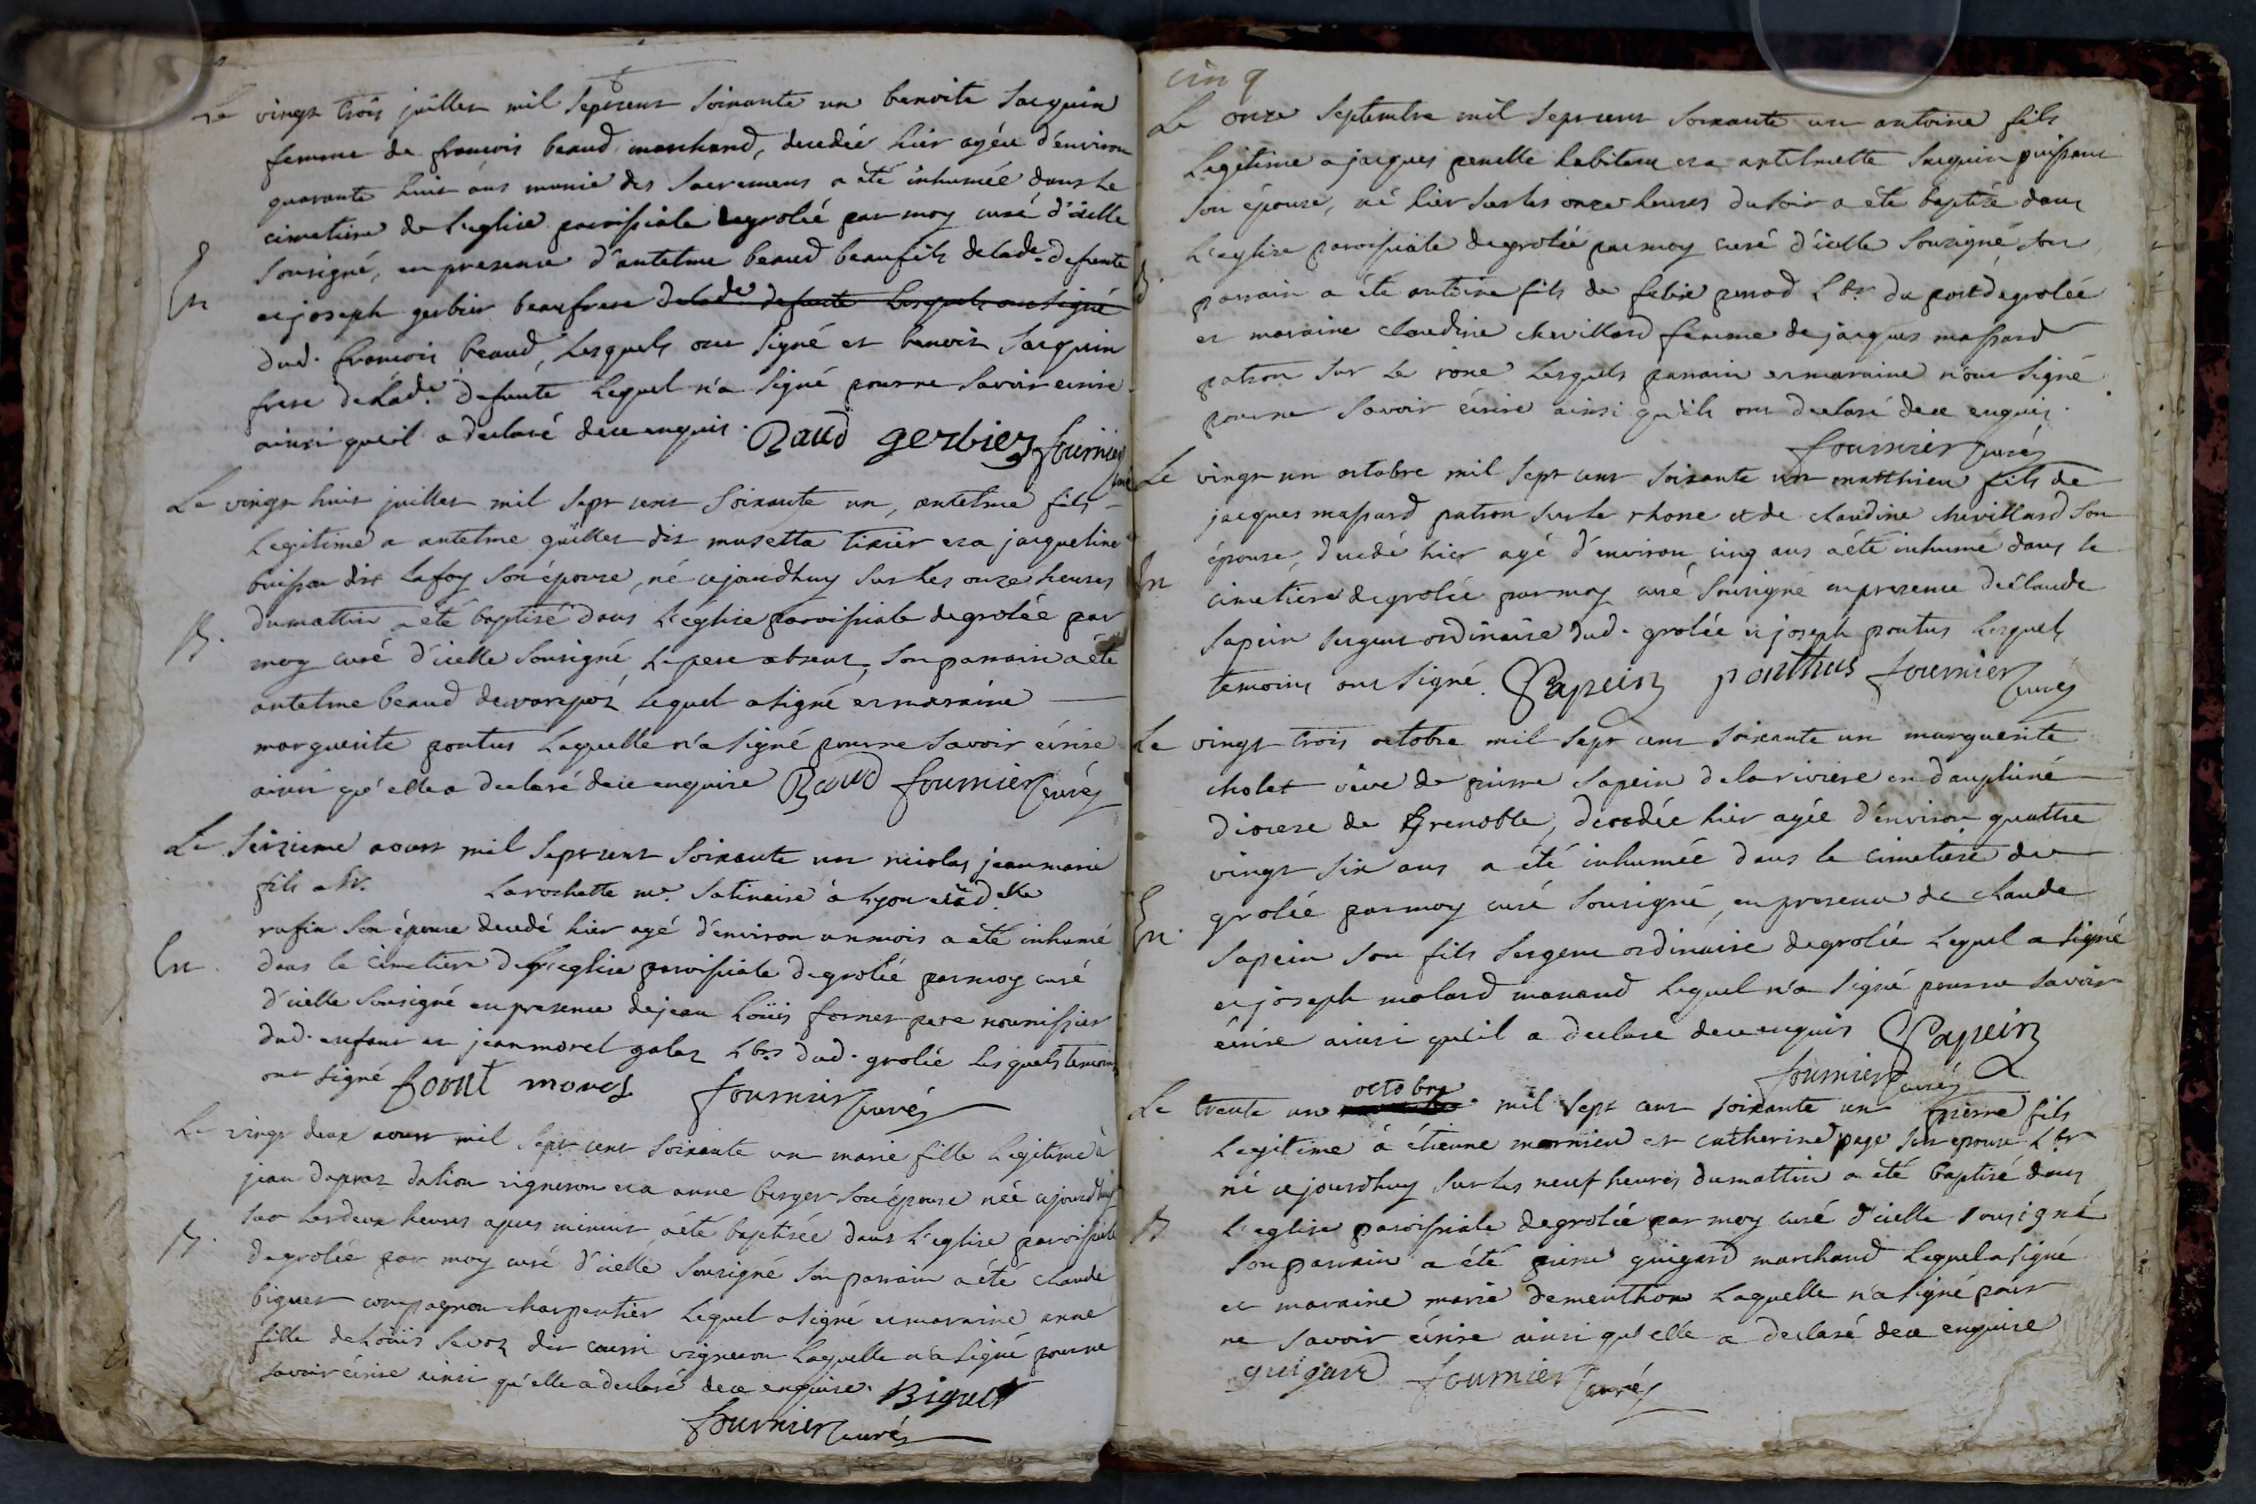 Le vingt trois juillet mil Septcent Soixante un benoite Jacquin
femme de francois beaud marchand, decedée hier agée d'environ
quarante huit ans munie des Sacremens a été inhumée dans le
cimetiere de L'eglise paroissiale de grolée par moy curé d'icelle
En Sousigné, en presence d'antelme beaud beaufils delade. defunte
et joseph gerbier beaufrere delade. defunte Lesquels ont signé
dud. francois beaud, Lesquels ont Signé et benoit Jacquin
frere de Lade. defunte Lequel n'a Signé pour ne Savoir ecrire
ainsi qu'il a declaré de ce enquis. Baud gerbier fournier
curé
Le vingt huit juillet mil Sept cent Soixante un, antelme fils
Legitime a antelme guillet dit musetta tixier et a jacqueline
buisson dit Lafoy Son épouse, né cejourdhuy Sur Les onze heures
B. dumattin a été baptisé dans L'église paroissiale de grolée par
moy curé d'icelle Sousigné Le pere absent, Son parrain a été
antelme beaud de Lequel a signé et maraine
marguerite pontus Laquelle n'a Signé pour ne Savoir écrire
ainsi qu'elle a declaré de ce enquise Baud fournier curé
Le Seizieme aoust mil Septcent Soixante un nicolas jean marie
fils a Sr. Larochette me. Satinaire à Lyon et a delle
rufin Son épouse decedé hier agé d'environ un mois a été inhumé
En. dans le cimetiere de L'eglise paroissiale de grolée par moy curé
d'icelle Sousigné en presence de jean Loüis fornet pere nourrissier
dud. enfant et jean morel galat Lbrs dud. grolée Lesquels temoins
ont signé morel fournier curé
Le vingt deux aoust mil Sept cent Soixante un marie fille Legitime à
jean dapraz dalion vigneron et a anne berger Son épouse née cejourdhuy
Sur Les deux heures apres minuit, a été baptisée dans L'eglise paroissiale
B. de grolée par moy curé d'icelle Sousigné Son parrain a été claude
biguet compagnon charpentier Lequel a Signé et maraine anne
fille de Loüis Sevoz dit vigneron Laquelle n'a Signé pour ne
savoir écrire ainsi qu'elle a declaré de ce enquise. Biguet
fournier curé
cinq
Le onze Septembre mil Septcent Soixante un antoine fils
Legitime a jacques penelle habitant et a antelmette Jacquin
Son épouse, né hier Sur les onze heures du Soir a été baptisé dans
L'eglise paroissiale de grolée par moy curé d'icelle Sousigné, Son
B. parrain a été antoine fils de felix penod Lbr. du port de grolée
et maraine claudine chevillard femme de jacques massard
patron Sur Le rone Lesquels parrain et maraine n'ont Signé
pour ne Savoir écrire ainsi qu'ils ont declaré de ce enquis.
fournier curé
Le vingt un octobre mil Sept cent Soixante un matthieu fils de
jacques massard patron Sur le rhone et de claudine chevillard Son
épouse, decedé hier agé d'environ cinq ans a été inhumé dans le
En cimetiere de grolée par moy curé Sousigné en presence de Claude
Sapein Sergent ordinaire dud. grolée et joseph pontus Lesquels
temoins ont Signé. Sapein ponthus fournier curé
Le vingt trois octobre mil Sept cent Soixante un marguerite
cholet vëve de pierre Sapein de la riviere en dauphiné
diocese de Grenoble, decedée hier agée d'environ quattre
vingt Six ans a été inhumée dans le cimetiere de
En. grolée par moy curé Sousigné, en presence de claude
Sapein Son fils Sergent ordinaire de grolée Lequel a Signé
et joseph molard manand Lequel n'a Signé pour ne Savoir
écrire ainsi qu'il a declaré de ce enquis Sapein
fournier curé
octobre
Le trente un mil Sept cent soixante un pierre fils
Legitime à étienne mornieu et catherine page Son epouse Lbr
né cejourdhuy Sur les neuf heures dumattin a été baptisé dans
B L'eglise paroissiale de grolée par moy curé d'icelle Sousigné
Son parrain a été pierre guigard marchand Lequel a signé
et maraine marie dementhon Laquelle n'a signé pour
ne savoir écrire ainsi qu'elle a declaré de ce enquise
guigard fournier curé